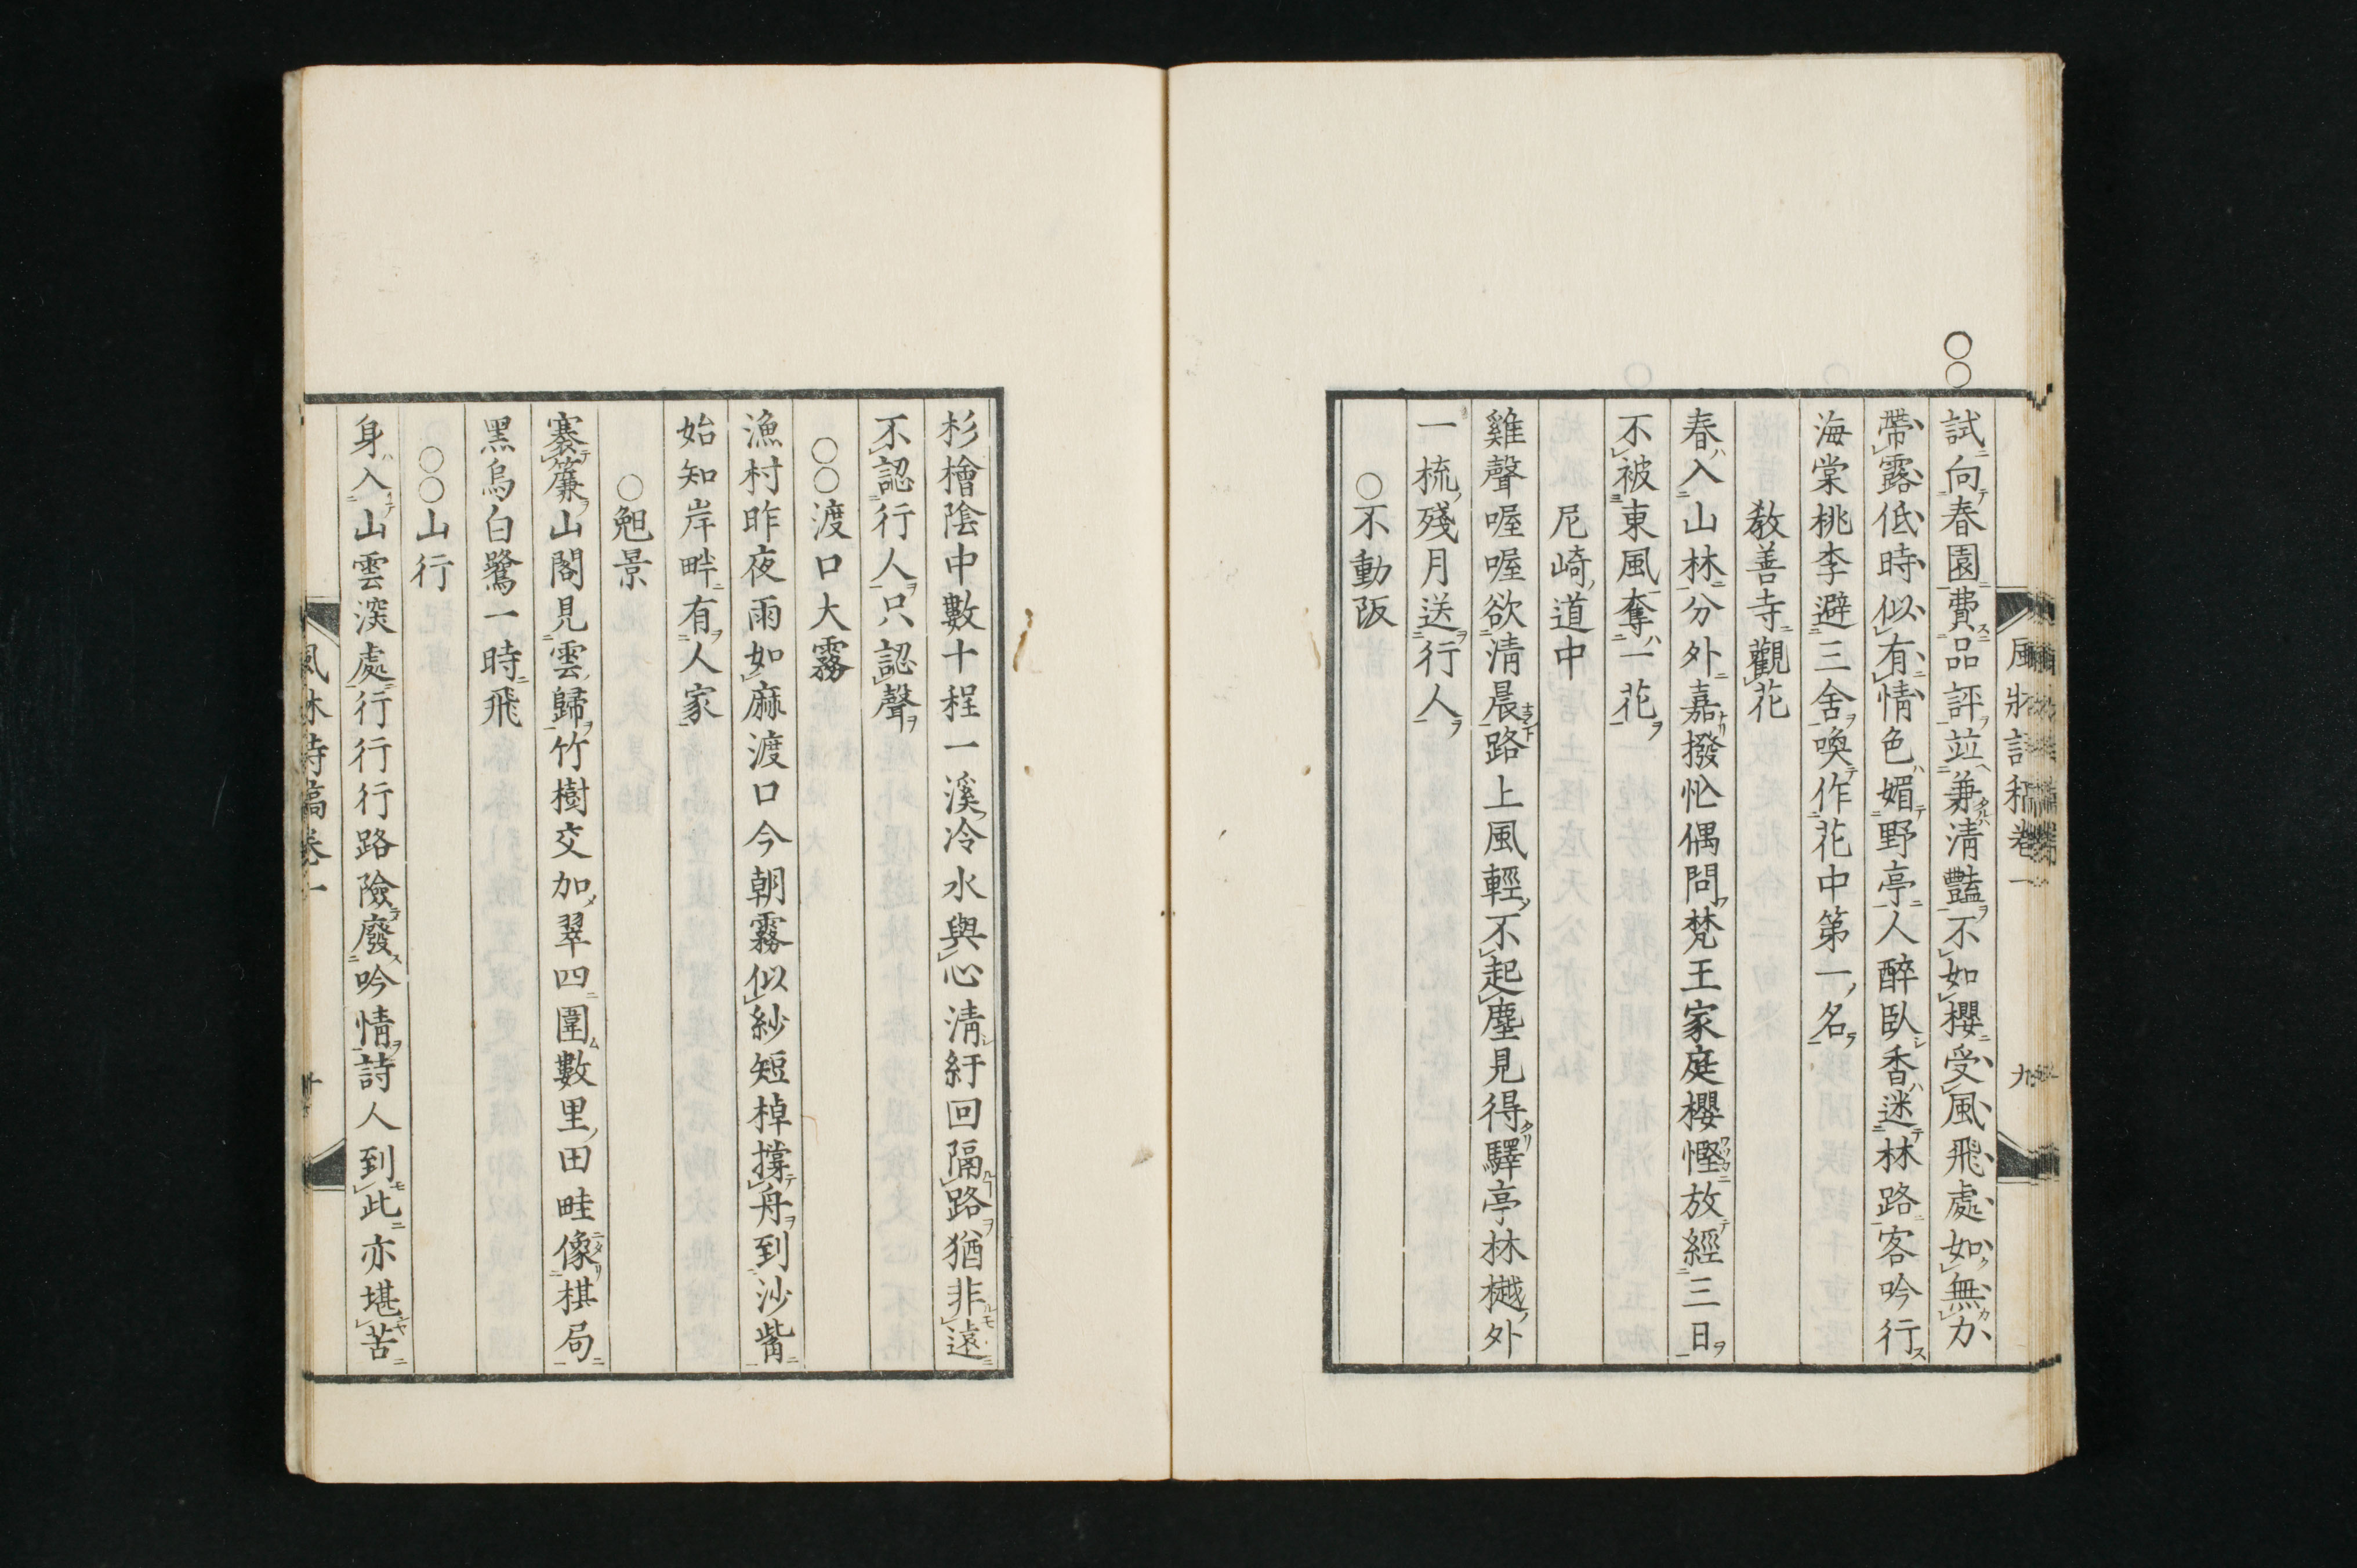 ○○試向春園費品評竝兼清豔不如櫻受風飛處如無力
帶露低時似有情色媚野亭人醉臥香迷林路客吟行
海棠桃李避三舍喚作花中第一名
教善寺觀花
春入山林分外嘉撥忙偶問梵王家庭櫻慳放經三日
不被東風奪一花
尼崎道中
雞聲喔喔欲清晨路上風輕不起塵見得驛亭林樾外
一梳殘月送行人
○不動阪
杉檜陰中數十程一溪冷水與心清紆回隔路猶非遠
不認行人只認聲
○○渡口大霧
漁村昨夜雨如麻渡口今朝霧似紗短棹撐舟到沙觜
始知岸畔有人家
○晩景
褰簾山閣見雲歸竹樹交加翠四圍數里田畦像棋局
黑烏白鷺一時飛
○○山行
身入山雲深處行行行路險廢吟情詩人到此亦堪苦
風林詩稿卷一